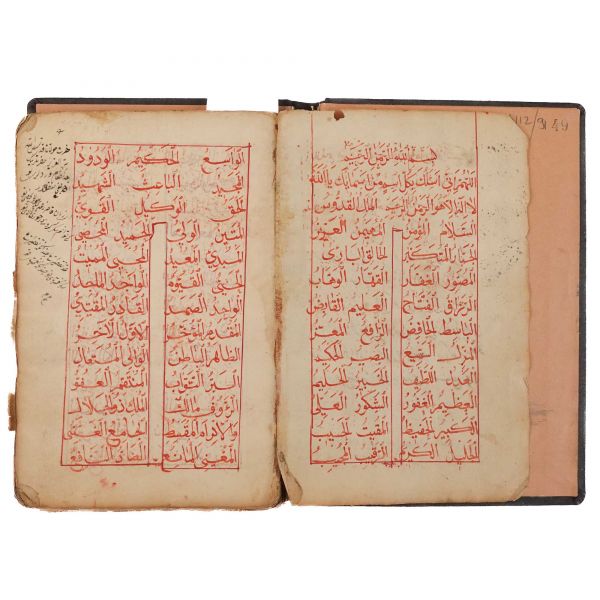 بسم الله الرحمن الرحيم
اللهم اني اسئلك بكل اسم من اسمايك يا الله
لا اله الا هو الرحمن الرحيم الملك القدوس
السلام المؤمن المهيمن العزيز
الجبار المتكبر الخالق الباري
المصور الغفار القهار الوهاب
الرزاق الفتاح العليم القابض
الباسط الخافض الرافع المعز
المذل السميع البصير الحكم
العدل اللطيف الخبير الحليم
العظيم الغفور الشكور العلي
الكبير الحفيظ المقيت الحسيب
الجليل الكريم الرقيب المجيب
الواسع الحكيم الودود
المجيد الباعث الشهيد
الحق الوكيل القوي
المتين الولي الحميد المحصي
المبدي المعيد المحيي المميت
الحي القيوم الواجد الماجد
الواحد الصمد القادر المقتدر
المقدم المؤخر الاول الاخر
الظاهر الباطن الوالي المتعال
البر التواب المنتقم العفو
الرؤوف مالك الملك ذو الجلال
والاكرام المقسط الجامع الغني
المغني المانع الضار النافع
112/9149